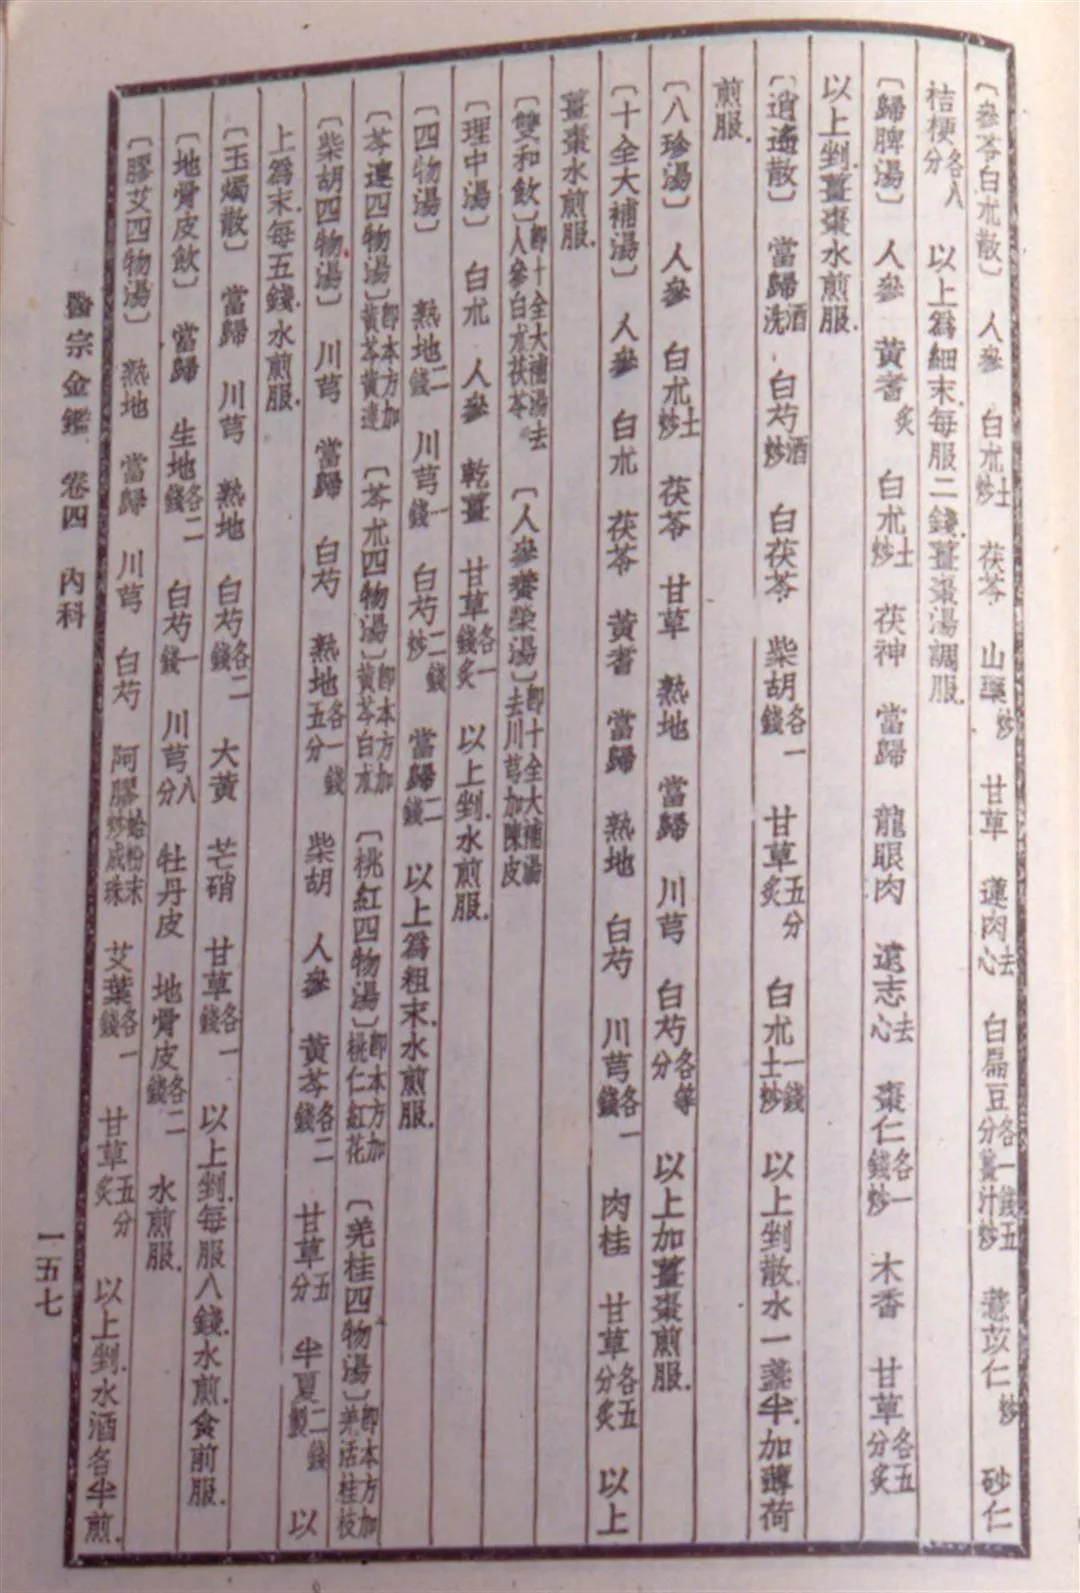 〔參苓白朮散〕 人參 白朮土炒 茯苓 山藥炒 甘草 蓮肉去心 白扁豆各一錢五分薑汁炒 薏苡仁炒 砂仁
桔梗各八分 以上爲細末.每服二錢.薑棗湯調服.
〔歸脾湯〕 人參 黃耆炙 白朮土炒 茯神 當歸 龍眼肉 遠志去心 棗仁各一錢炒 木香 甘草各五分炙
以上剉.薑棗水煎服.
〔逍遙散〕 當歸酒洗 白芍酒炒 白茯苓 柴胡各一錢 甘草五分炙 白朮一錢土炒 以上剉散.水一盞半.加薄荷
煎服.
〔八珍湯〕 人參 白朮土炒 茯苓 甘草 熟地 當歸 川芎 白芍各等分 以上加薑棗煎服.
〔十全大補湯〕 人參 白朮 茯苓 黃耆 當歸 熟地 白芍 川芎各一錢 肉桂 甘草各五分炙 以上
薑棗水煎服.
〔雙和飲〕卽十全大補湯去人參白朮茯苓 〔人參養榮湯〕卽十全大補湯去川芎加陳皮
〔理中湯〕 白朮 人參 乾薑 甘草各一錢炙 以上剉.水煎服.
〔四物湯〕 熟地二錢 川芎一錢 白芍二錢炒 當歸二錢 以上爲粗末.水煎服.
〔芩連四物湯〕卽本方加黃芩黃連 〔芩朮四物湯〕卽本方加黃芩白朮 〔桃紅四物湯〕卽本方加桃仁紅花 〔羌桂四物湯〕卽本方加羌活桂枝
〔柴胡四物湯〕 川芎 當歸 白芍 熟地各一錢五分 柴胡 人參 黃芩各二錢 甘草五分 半夏二錢製 以
上爲末.每五錢.水煎服.
〔玉燭散〕 當歸 川芎 熟地 白芍各二錢 大黃 芒硝 甘草各一錢 以上剉.每服八錢.水煎.食前服.
〔地骨皮飲〕 當歸 生地各二錢 白芍一錢 川芎八分 牡丹皮 地骨皮各二錢 水煎服.
〔膠艾四物湯〕 熟地 當歸 川芎 白芍 阿膠蛤粉末炒成珠 艾葉各一錢 甘草五分炙 以上剉.水酒各半煎.
醫宗金鑑 卷四 內科
一五七